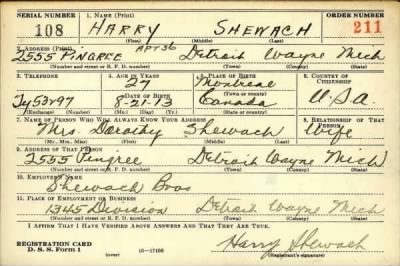 SERIAL NUMBER 1. NAME (Print) ORDER NUMBER
108 HARRY SHEWACH 211
(First) (Middle) (Last)
2. ADDRESS (Print) APT 36
2555 PINGREE Detroit Wayne Mich
(Number and street or R. F. D. number) (Town) (County) (State)
3. TELEPHONE 4. AGE IN YEARS 5. PLACE OF BIRTH 6. COUNTRY OF CITIZENSHIP
27 Montreal
(Town or county)
Ty 53297 DATE OF BIRTH Canada U.S.A
8-21-13
(Exchange) (Number) (Mo.) (Day) (Yr.) (State or country)
7. NAME OF PERSON WHO WILL ALWAYS KNOW YOUR ADDRESS 8. RELATIONSHIP OF THAT PERSON
Mrs. Dorothy Shewach Wife
(Mr., Mrs., Miss) (First) (Middle) (Last)
9. ADDRESS OF THAT PERSON
2555 Pingree Detroit Wayne Mich
(Number and street or R. F. D. number) (Town) (County) (State)
10. EMPLOYER'S NAME
Shewach Bros
11. PLACE OF EMPLOYMENT OR BUSINESS
1345 Division Detroit Wayne Mich
(Number and street or R. F. D. number) (Town) (County) (State)
I AFFIRM THAT I HAVE VERIFIED ABOVE ANSWERS AND THAT THEY ARE TRUE.
REGISTRATION CARD
D. S. S. Form 1 (over) 16—17105 Harry Shewach
(Registrant's signature)